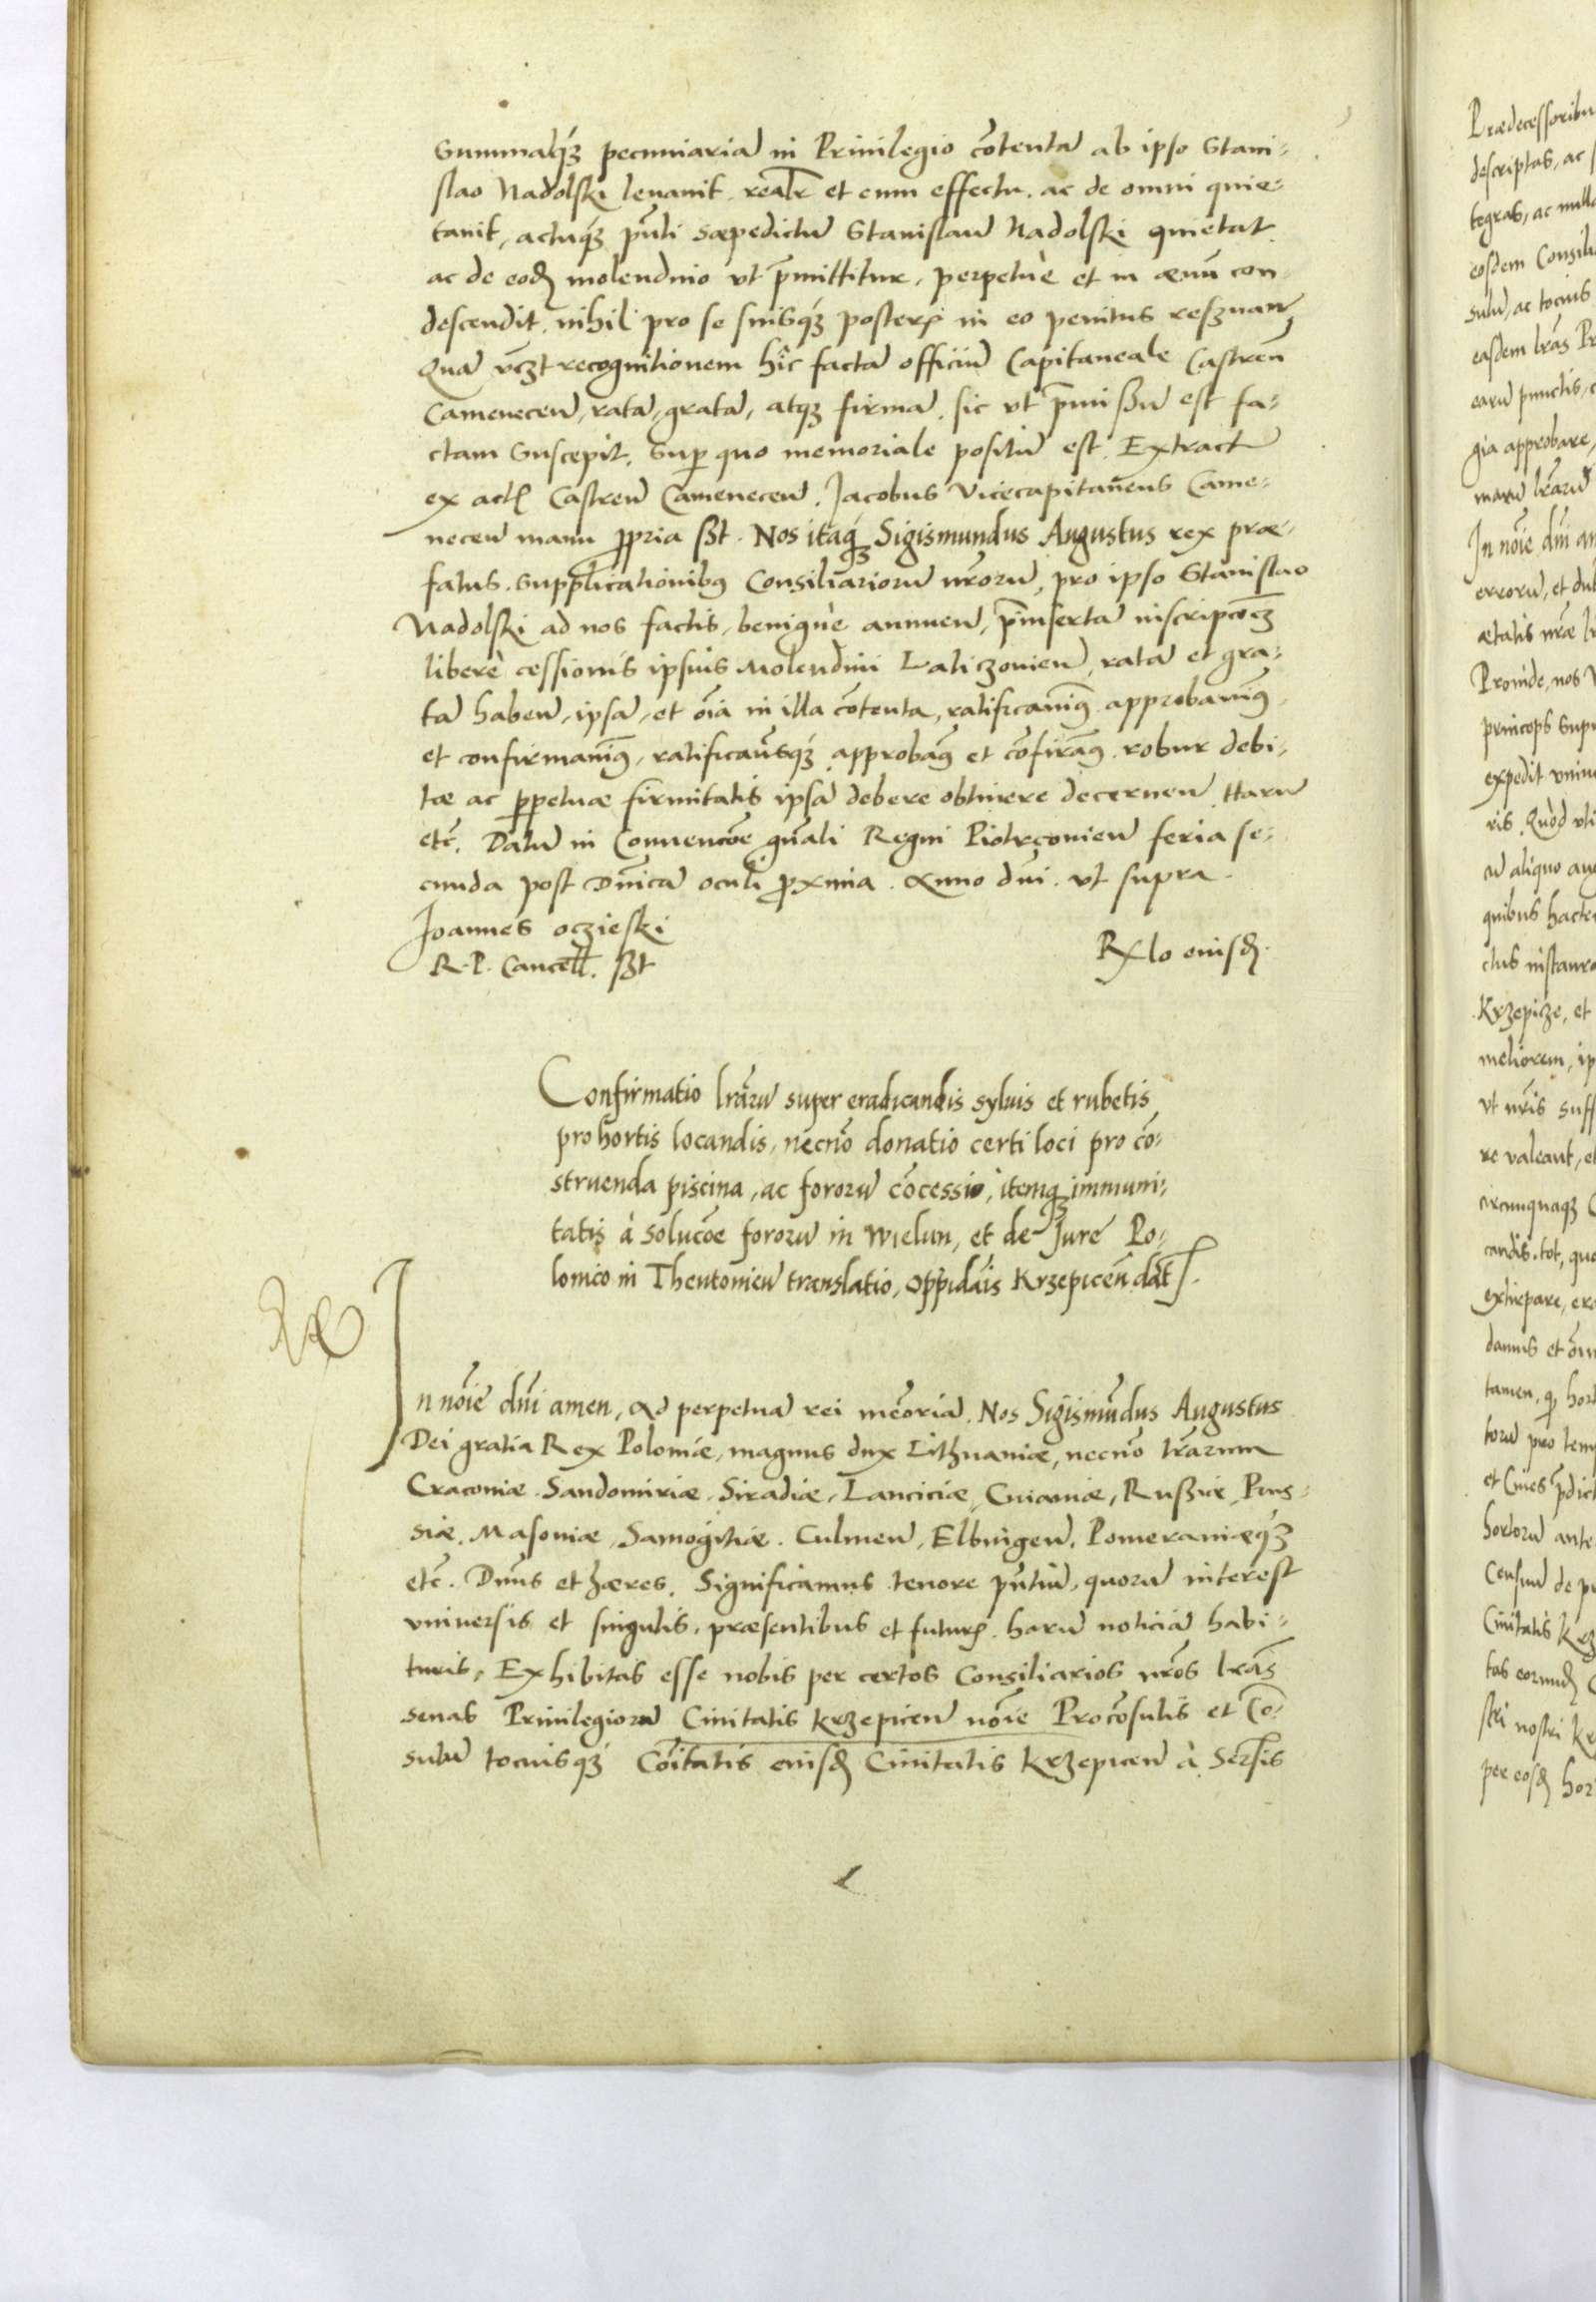 Summaq₃ pecuniariā in Priuilegio cōtentā ab ipso Stani-
slao Nadolski leuauit, realr̄ et cum effectu, ac de omni quie-
tauit, actuq₃ pn̄ti sæpedictū Stanislaū Nadolski quietat
ac de eod molendino vt p̄mittitur, perpetuè et in æuū con-
descendit, nihil pro se suisq₃ poster in eo penitus reseruan̄
Quā recognitionem hîc factā officiū Capitaneale Castren̄
Camenecen̄, ratā, gratā, atq₃ firmā, sic vt p̄missū est fa-
ctam suscepit. Sup quo memoriale positū est. Extract
ex act Castren̄ Camenecen̄. Jacobus Vicecapitaneus Came-
necen̄ manu ppria sst. Nos itaq₃ Sigismundus Augustus rex præ-
fatus. Supplicationibq Consiliariorū nr̄orū, pro ipso Stanislao
Nadolski ad nos factis, benignè annuen̄, p̄insertā inscripcoe₃
liberè cessionis ipsius Molendini Laticzouien̄, ratā et gra-
tā haben̄, ipsā, et oīa in illa cōtenta, ratificauimq approbauimq
et confirmauimq, ratificam̄sq₃ approbamq et cōfirāmq robur debi-
tæ ac perpetuæ firmitatis ipsā debere obtinere decernen̄ Harū
etc̄. Datū in Conuencōe gn̄ali Regni Piotrcouien̄ feria se-
cunda post Dn̄icā oculi pxima. Anno dn̄i. vt supra.
Joannes oczieski
R. P. Cancell. sst
Rlo eiusd.
Confirmatio lrārū super eradicandis syluis et rubetis
pro hortis locandis, necnō donatio certi loci pro cō-
struenda piscina, ac fororū cōcessio, itemq₃ immuni-
tatis à solucōe fororū in Wielun, et de Jure Po-
lonico in Theutonicū translatio, oppidāis Krzepicen̄ dat.
In nōie dn̄i amen, Ad perpetuā rei mēoriā. Nos Sigismūdus Augustus
Dei gratia Rex Poloniæ, magnus dux Lithuaniæ, necnō trārum
Cracouiæ, Sandomiriæ, Siradiæ, Lanciciæ, Cuiauiæ, Russiæ, Prus-
siæ, Masouiæ, Samogitiæ, Culmen̄, Elbingen̄, Pomeraniæq₃
etc̄. Dn̄us et hæres. Significamus tenore pn̄tiū, quorū interest
vniuersis et singulis, præsentibus et futur harū noticiā habi-
turis, Exhibitas esse nobis per certos Consiliarios nr̄os lrās
senas Priuilegiorū Ciuitatis Krzepicen̄ nōie Procōsulis et Cō-
sulū tociusq₃ Cōitatis eiusd Ciuitatis Krzepicen̄ à Serīsis
Prædecessoribu
descriptas, ac
tegras, ac nulla
eosdem Consili
sulū, ac tocius
easdem lrās Pr
earū punctis, c
gia approbare,
marū lrārū
In nōie dn̄i am
errorū, et dub
ætatis nr̄æ lr
Proinde, nos
princeps supr
expedit vniu
ris. Quòd vti
ū aliquo aug
quibus hacte
ctus instaura
Krzepicze, et
meliorem, ip
vt nr̄is suff
re valeant, et
circumquaq₃
candis, tot, quo
extirpare, era
damus et
tamen, q hor
torū pro tem
et Ciues p̄dict
hortorū ante
Censum de p
Ciuitatis Krz
tas eorund
stri nostri Kr
per eosd hor